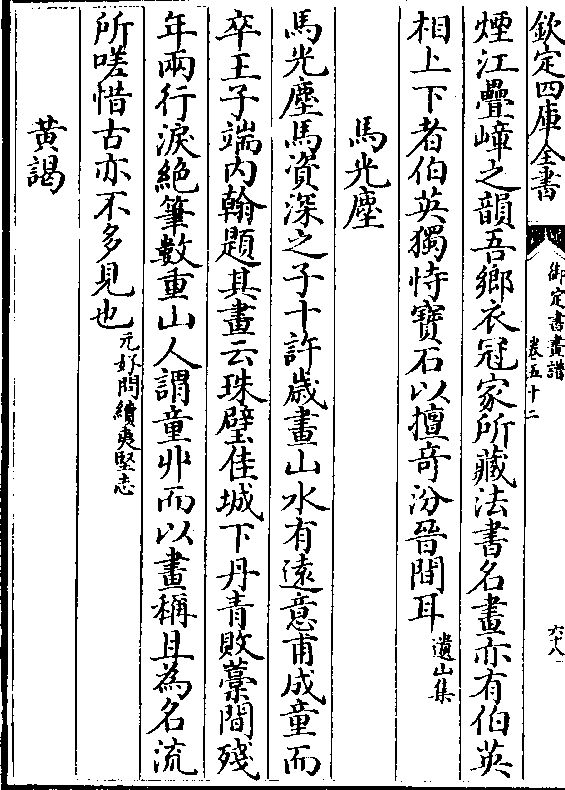 欽定四庫全書
御定書畫譜
卷五十二
六八
煙江疊嶂之韻吾鄉衣冠家所藏法書名畫亦有伯英
相上下者伯英獨恃寶石以擅竒汾晉間耳遺山集
馬光塵
馬光塵馬資深之子十許歳畫山水有逺意甫成童而
卒王子端内翰題其畫云珠璧佳城下丹青敗藁間殘
年兩行淚絶筆數重山人謂童丱而以畫稱且為名流
所嗟惜古亦不多見也元好問續夷堅志
黄謁